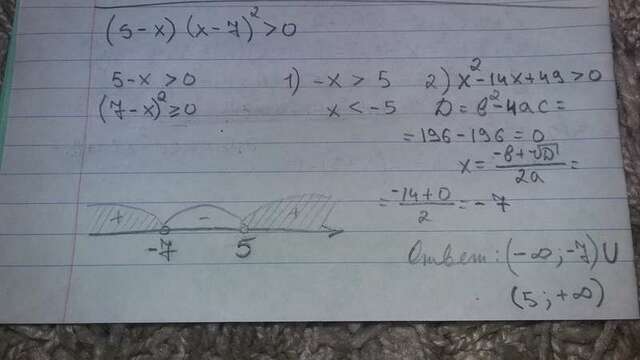 (5-x) (x-7)² >0
5-x >0
(7-x)² ≥0
1) -x > 5
x < -5
2) x²-14x+49 >0
D = b²-4ac =
=196-196 = 0
x = (-b+√D)/2a =
= (-14+0)/2 = -7
+ - +
-7 5
Ответ: (-∞;-7) U
(5;+∞)